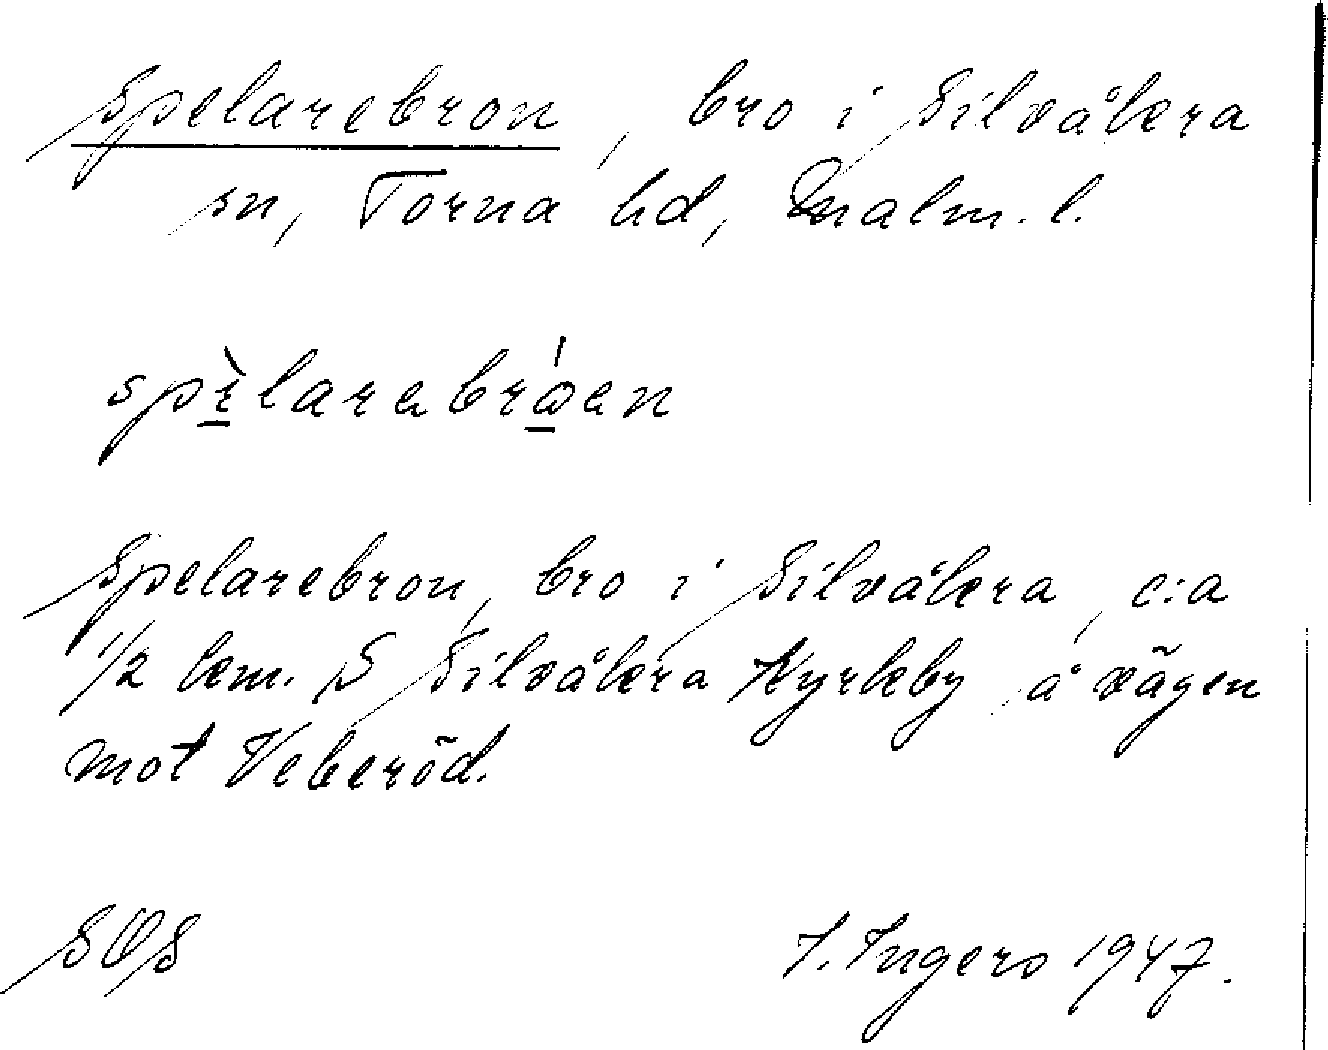 Spelarebron, bro i Silvåkra
sn, Torna hd, Malm. l.
spìlarebróen
Spelarebron, bro i Silvåkra, c:a
1/2 km. S Silvåkra Kyrkby å vägen
mot Veberöd.
SOS
I. Ingers 1947.